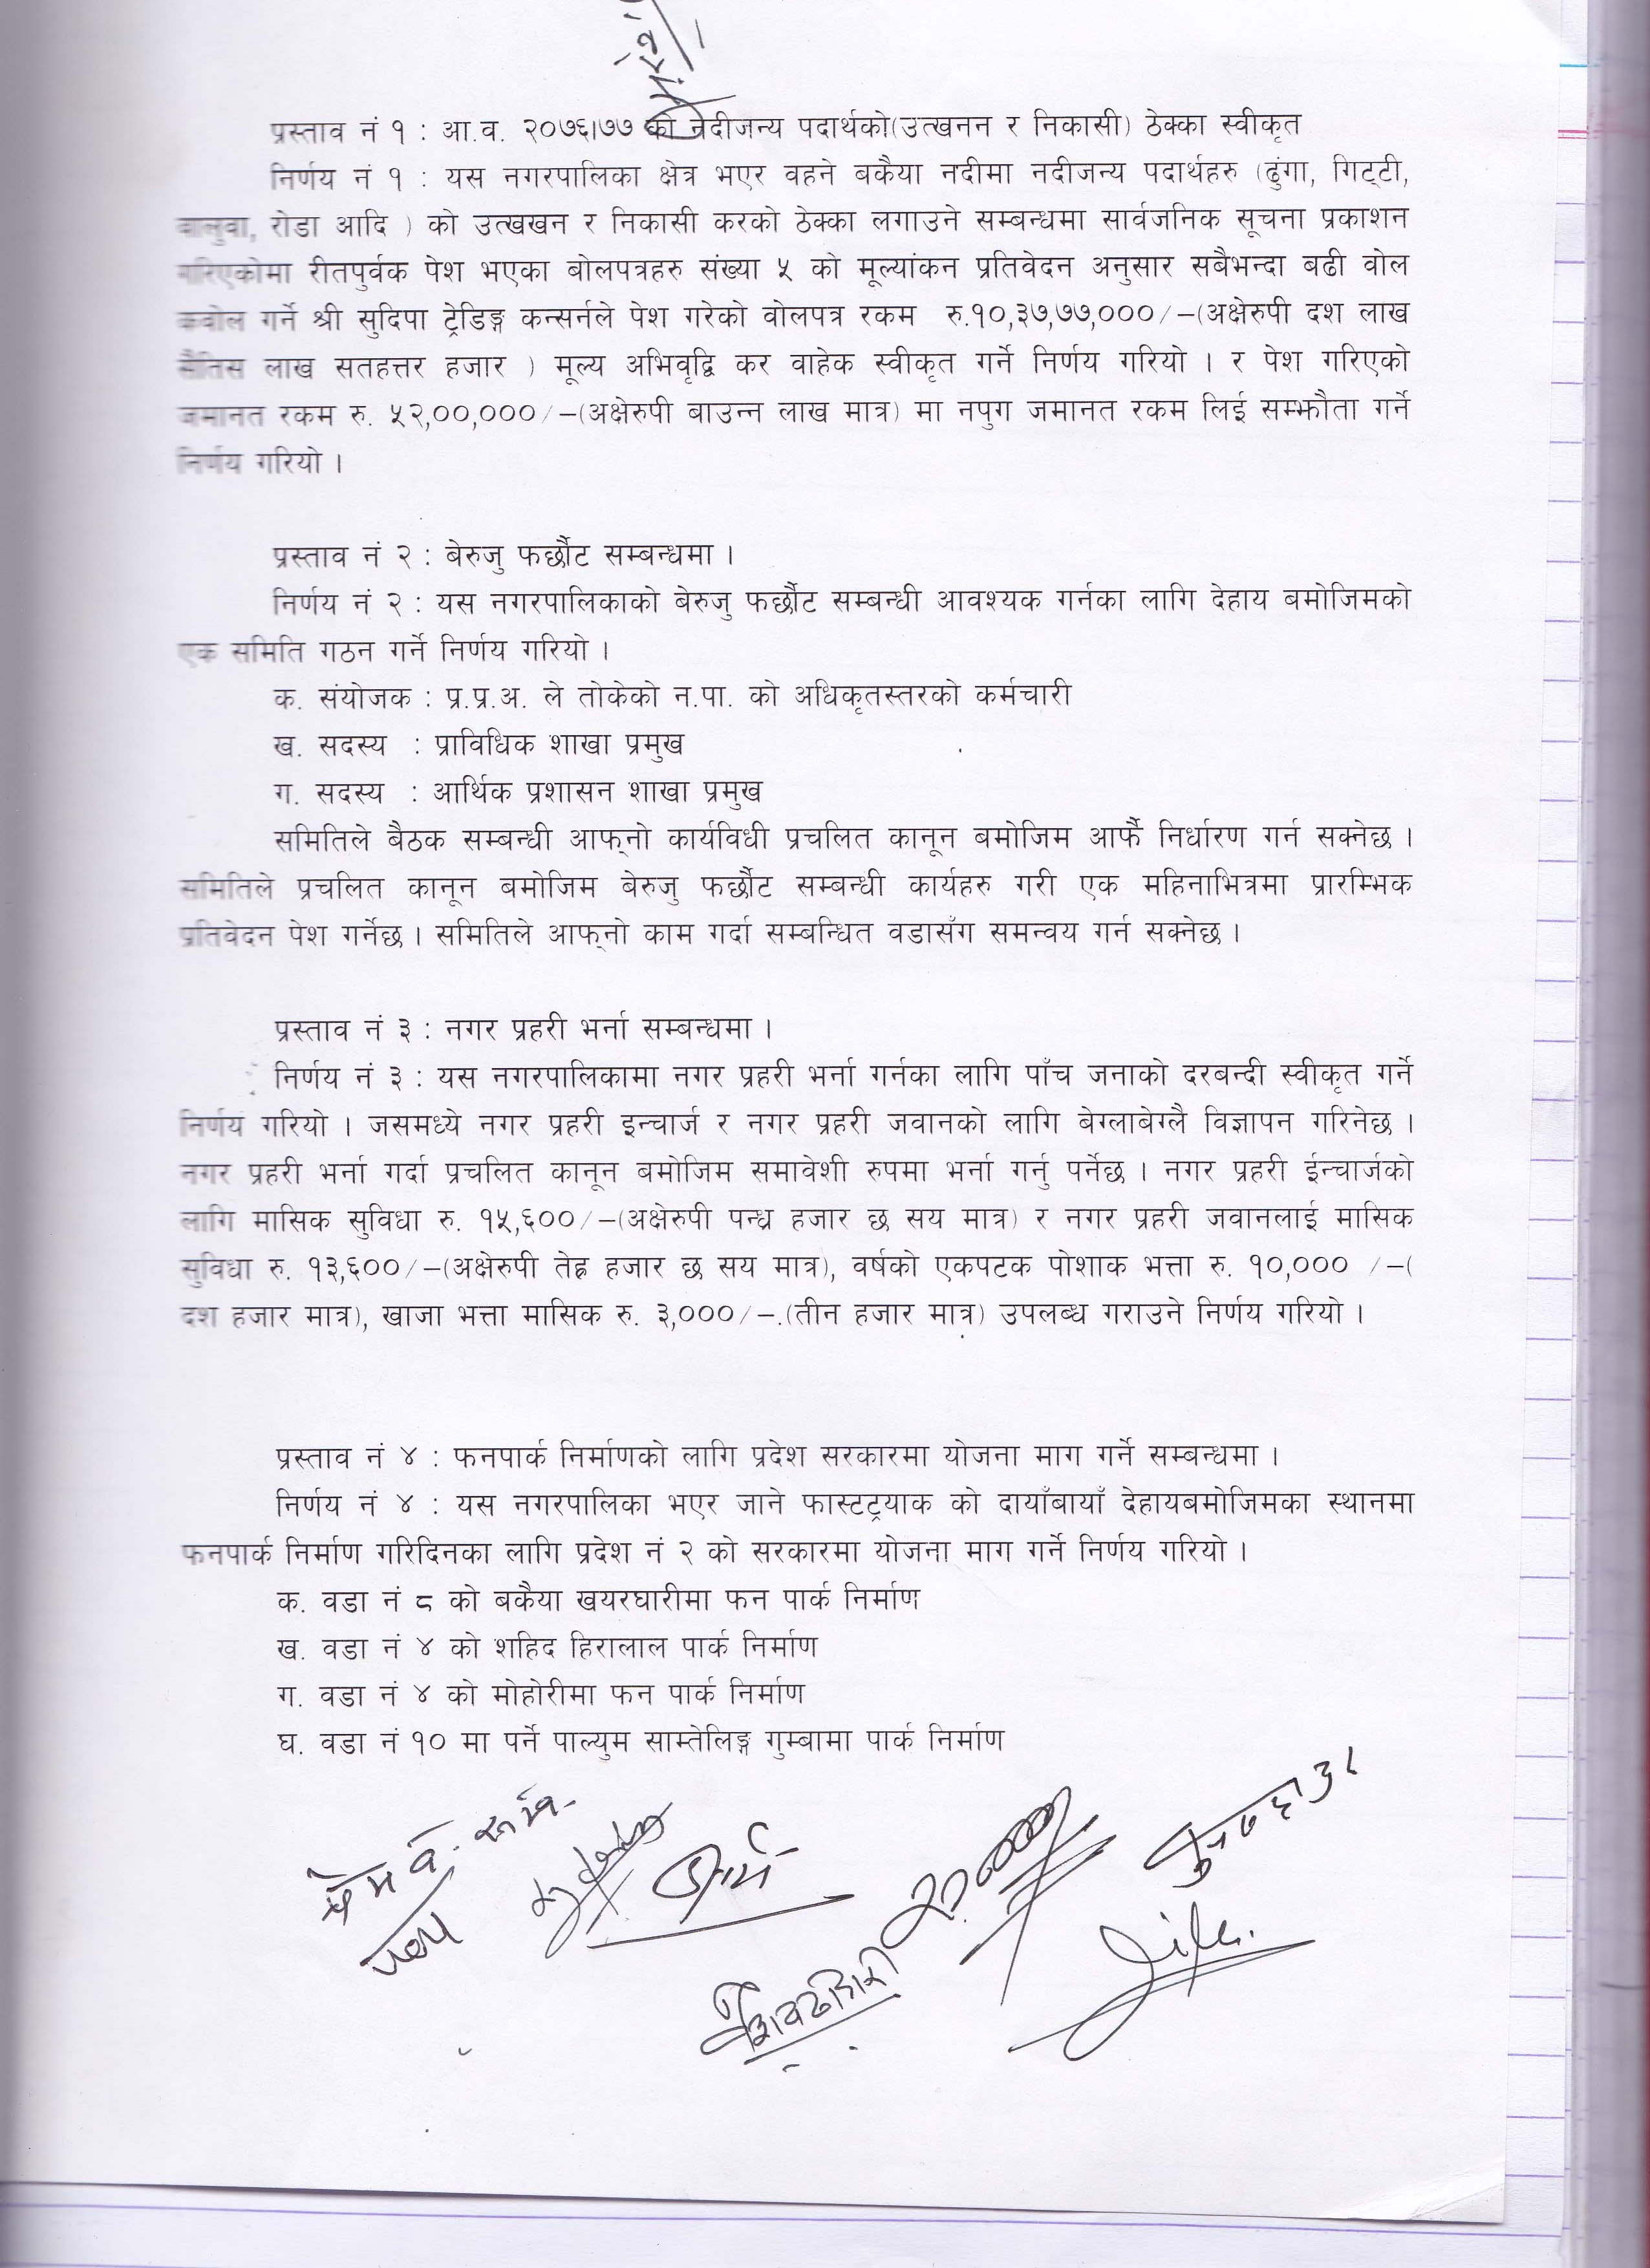 प्रस्ताव नं १ : आ.व. २०७६।७७ को नदीजन्य पदार्थको(उत्खनन र निकासी) ठेक्का स्वीकृत
निर्णय नं १ : यस नगरपालिका क्षेत्र भएर वहने बकैया नदीमा नदीजन्य पदार्थहरु (ढुंगा, गिट्टी,
बालुवा, रोडा आदि ) को उत्खखन र निकासी करको ठेक्का लगाउने सम्बन्धमा सार्वजनिक सूचना प्रकाशन
गरिएकोमा रीतपुर्वक पेश भएका बोलपत्रहरु संख्या ५ को मूल्यांकन प्रतिवेदन अनुसार सबैभन्दा बढी वोल
कबोल गर्ने श्री सुदिपा ट्रेडिङ्ग कन्सर्नले पेश गरेको वोलपत्र रकम रु.१०,३७,७७,०००/-(अक्षेरुपी दश लाख
सैतिस लाख सतहत्तर हजार ) मूल्य अभिवृद्वि कर वाहेक स्वीकृत गर्ने निर्णय गरियो । र पेश गरिएको
जमानत रकम रु. ५२,००,०००/-(अक्षेरुपी बाउन्न लाख मात्र) मा नपुग जमानत रकम लिई सम्झौता गर्ने
निर्णय गरियो ।
प्रस्ताव नं २ : बेरुजु फर्छौट सम्बन्धमा ।
निर्णय नं २ : यस नगरपालिकाको बेरुजु फर्छौट सम्बन्धी आवश्यक गर्नका लागि देहाय बमोजिमको
एक समिति गठन गर्ने निर्णय गरियो ।
क. संयोजक : प्र.प्र.अ. ले तोकेको न.पा. को अधिकृतस्तरको कर्मचारी
ख. सदस्य : प्राविधिक शाखा प्रमुख
ग. सदस्य : आर्थिक प्रशासन शाखा प्रमुख
समितिले बैठक सम्बन्धी आफ्नो कार्यविधी प्रचलित कानून बमोजिम आफैं निर्धारण गर्न सक्नेछ ।
समितिले प्रचलित कानून बमोजिम बेरुजु फर्छौट सम्बन्धी कार्यहरु गरी एक महिनाभित्रमा प्रारम्भिक
प्रतिवेदन पेश गर्नेछ । समितिले आफ्नो काम गर्दा सम्बन्धित वडासँग समन्वय गर्न सक्नेछ ।
प्रस्ताव नं ३ : नगर प्रहरी भर्ना सम्बन्धमा ।
निर्णय नं ३ : यस नगरपालिकामा नगर प्रहरी भर्ना गर्नका लागि पाँच जनाको दरबन्दी स्वीकृत गर्ने
निर्णय गरियो । जसमध्ये नगर प्रहरी इन्चार्ज र नगर प्रहरी जवानको लागि बेग्लाबेग्लै विज्ञापन गरिनेछ ।
नगर प्रहरी भर्ना गर्दा प्रचलित कानून बमोजिम समावेशी रुपमा भर्ना गर्नु पर्नेछ । नगर प्रहरी ईन्चार्जको
लागि मासिक सुविधा रु. १५,६००/-(अक्षेरुपी पन्ध्र हजार छ सय मात्र) र नगर प्रहरी जवानलाई मासिक
सुविधा रु. १३,६००/-(अक्षेरुपी तेह्र हजार छ सय मात्र), वर्षको एकपटक पोशाक भत्ता रु. १०,००० /-(
दश हजार मात्र), खाजा भत्ता मासिक रु. ३,०००/-.(तीन हजार मात्र) उपलब्ध गराउने निर्णय गरियो ।
प्रस्ताव नं ४ : फनपार्क निर्माणको लागि प्रदेश सरकारमा योजना माग गर्ने सम्बन्धमा ।
निर्णय नं ४ : यस नगरपालिका भएर जाने फास्टट्रयाक को दायाँबायाँ देहायबमोजिमका स्थानमा
फनपार्क निर्माण गरिदिनका लागि प्रदेश नं २ को सरकारमा योजना माग गर्ने निर्णय गरियो ।
क. वडा नं ८ को बकैया खयरघारीमा फन पार्क निर्माण
ख. वडा नं ४ को शहिद हिरालाल पार्क निर्माण
ग. वडा नं ४ को मोहोरीमा फन पार्क निर्माण
घ. वडा नं १० मा पर्ने पाल्युम साम्तेलिङ्ग गुम्बामा पार्क निर्माण